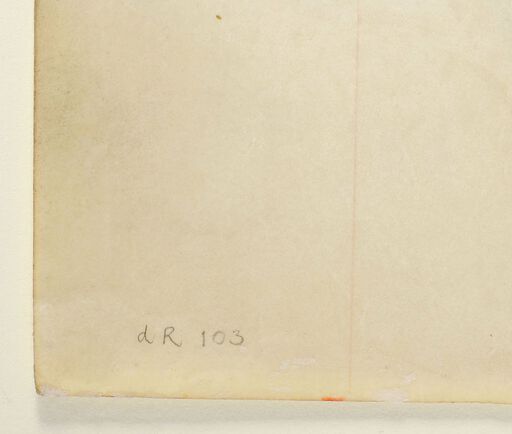 dR 103